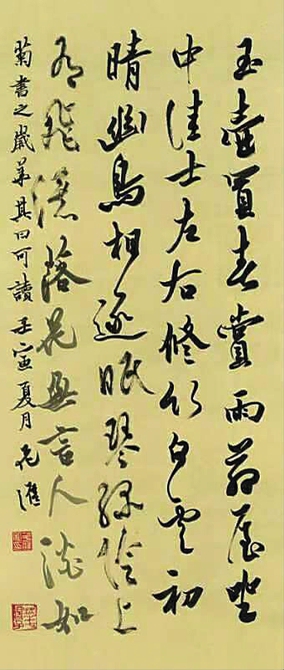 玉壺買春賞雨茆屋坐
中佳士左右修竹白雲初
晴幽鳥相逐眠琴綠陰上
有飛瀑落花無言人淡如
菊書之歲華其曰可讀 壬寅夏月